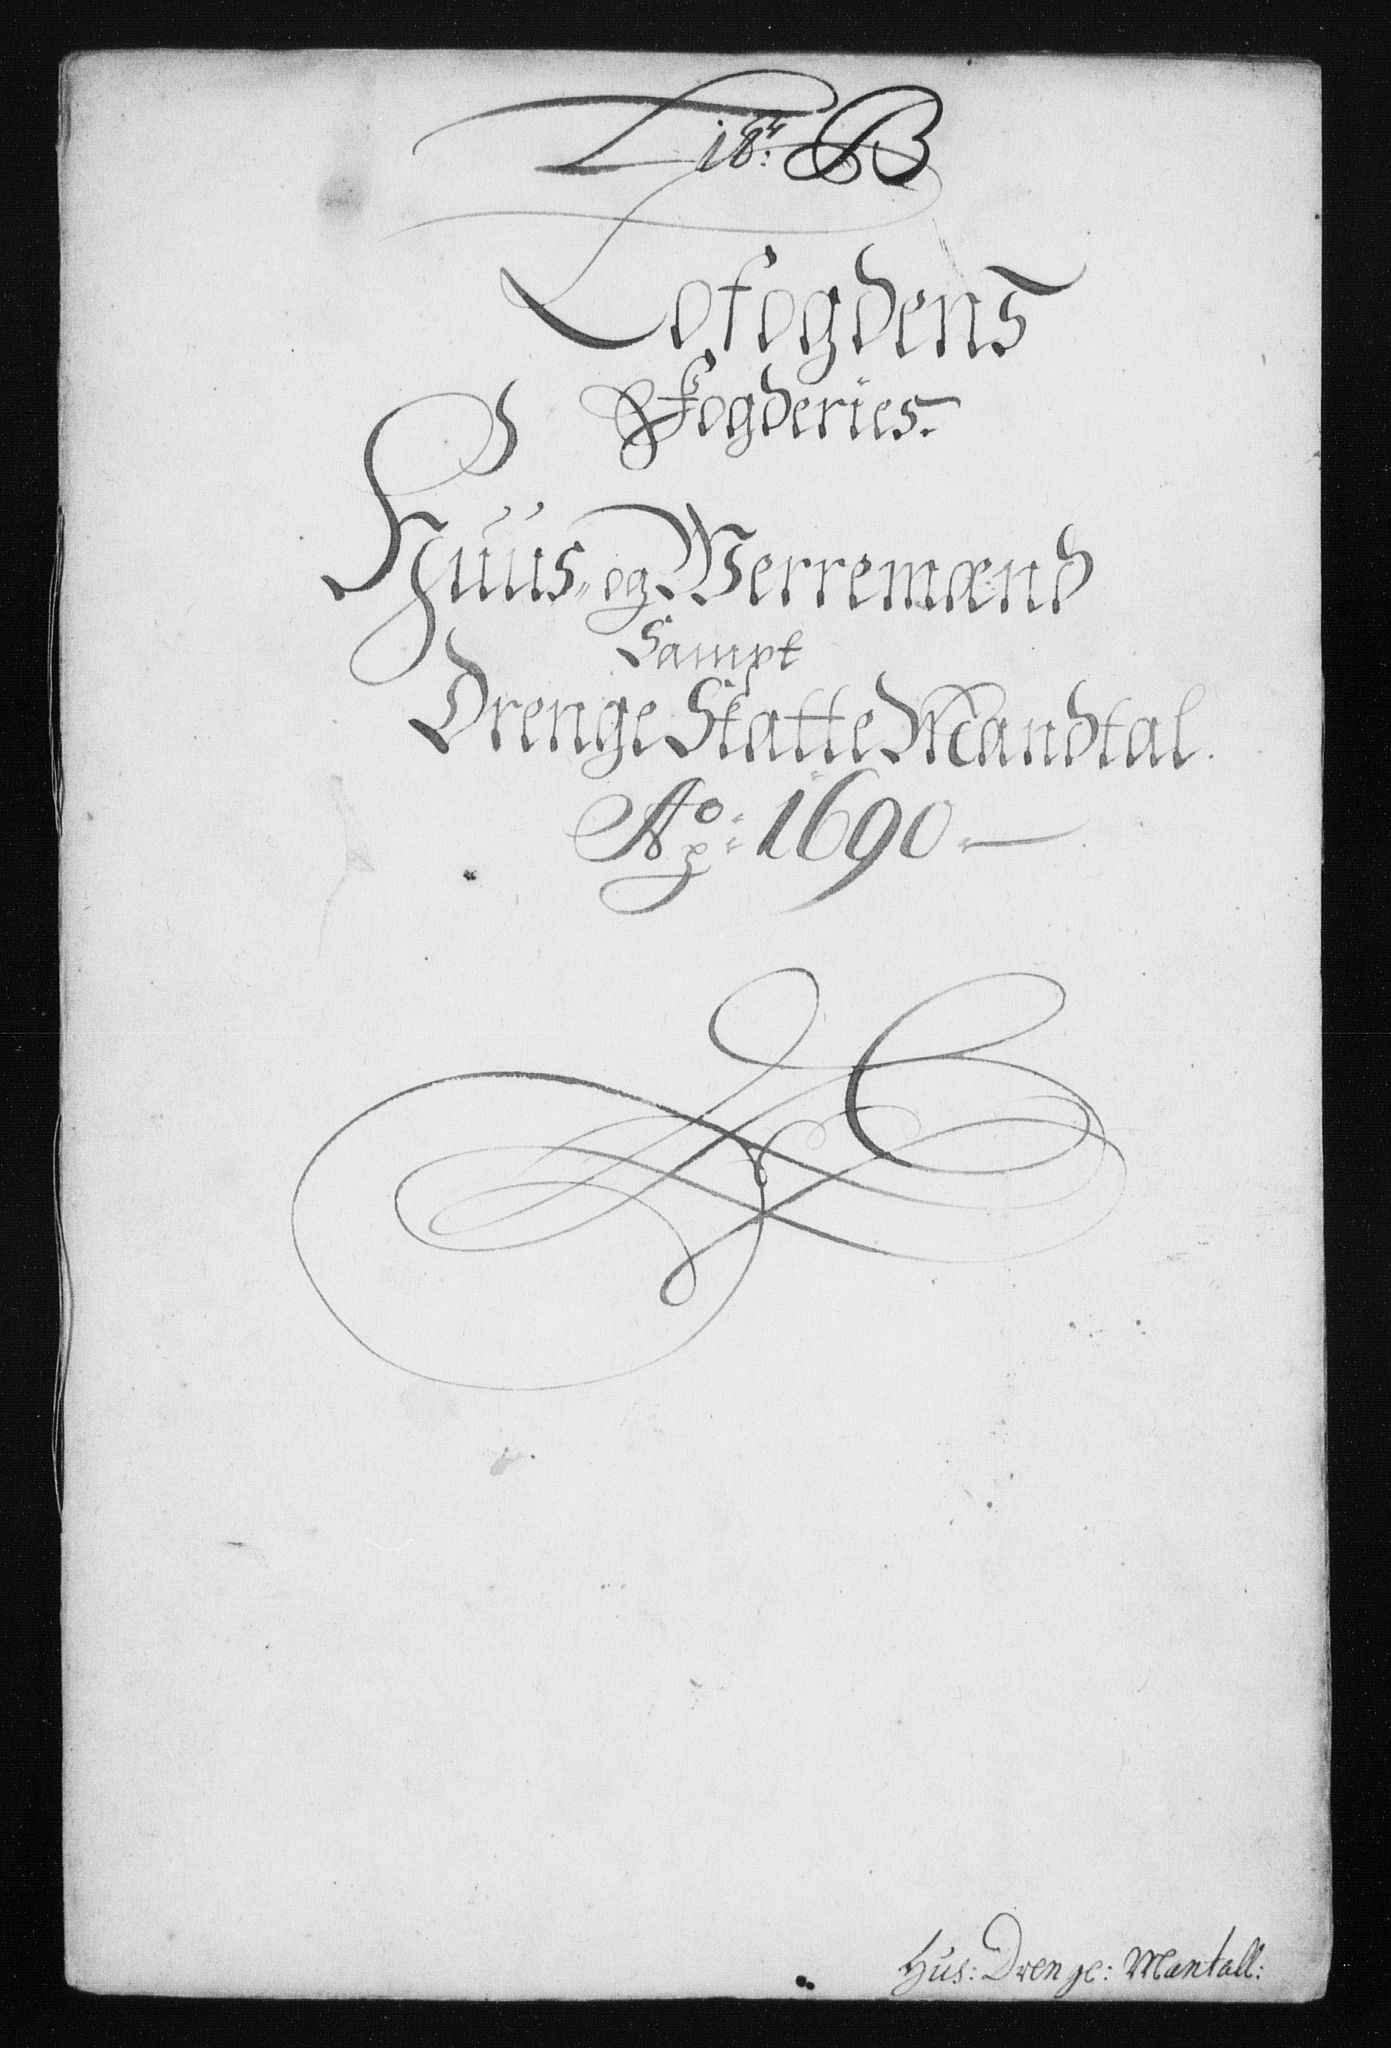 Litr: B
Lofogdens
Fogderies.
Huus, og Verremænd
Sampt
Drenge Skatte Mandtal.
Ao: 1690
Hus: Drenge: Mantall: